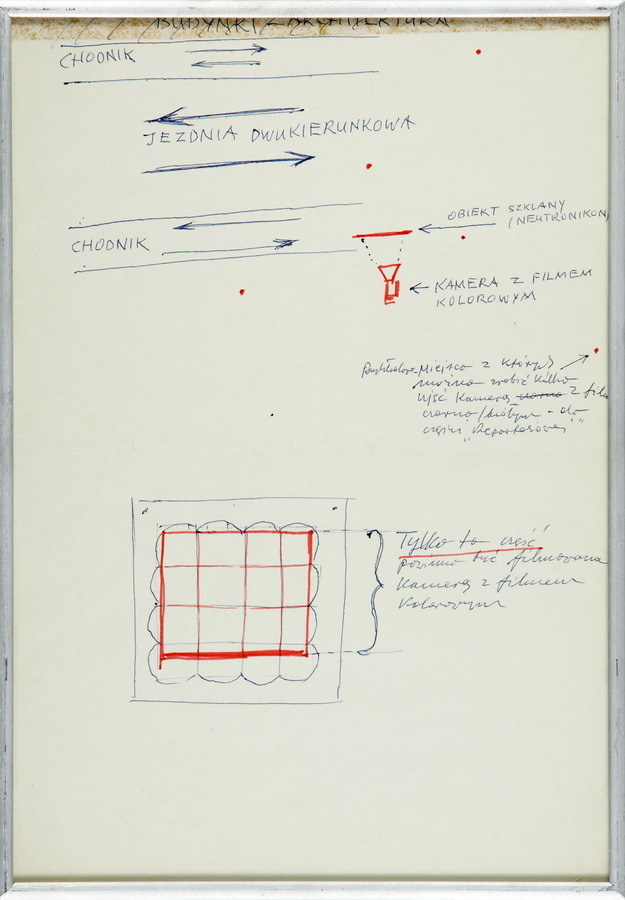 BUDYNKI Z ARCHITEKTURĄ
CHODNIK
JEZDNIA DWUKIERUNKOWA
OBIEKT SZKLANY
(NEUTRONIKON)
CHODNIK
KAMERA Z FILMEM
KOLOROWYM
Miejsca z których
można zrobić kilka
ujęć kamerą czarno z
czarno/białym - do
części "Reportażowej"
Tylko ta część
powinna być filmowana
kamerą z filmem
kolorowym